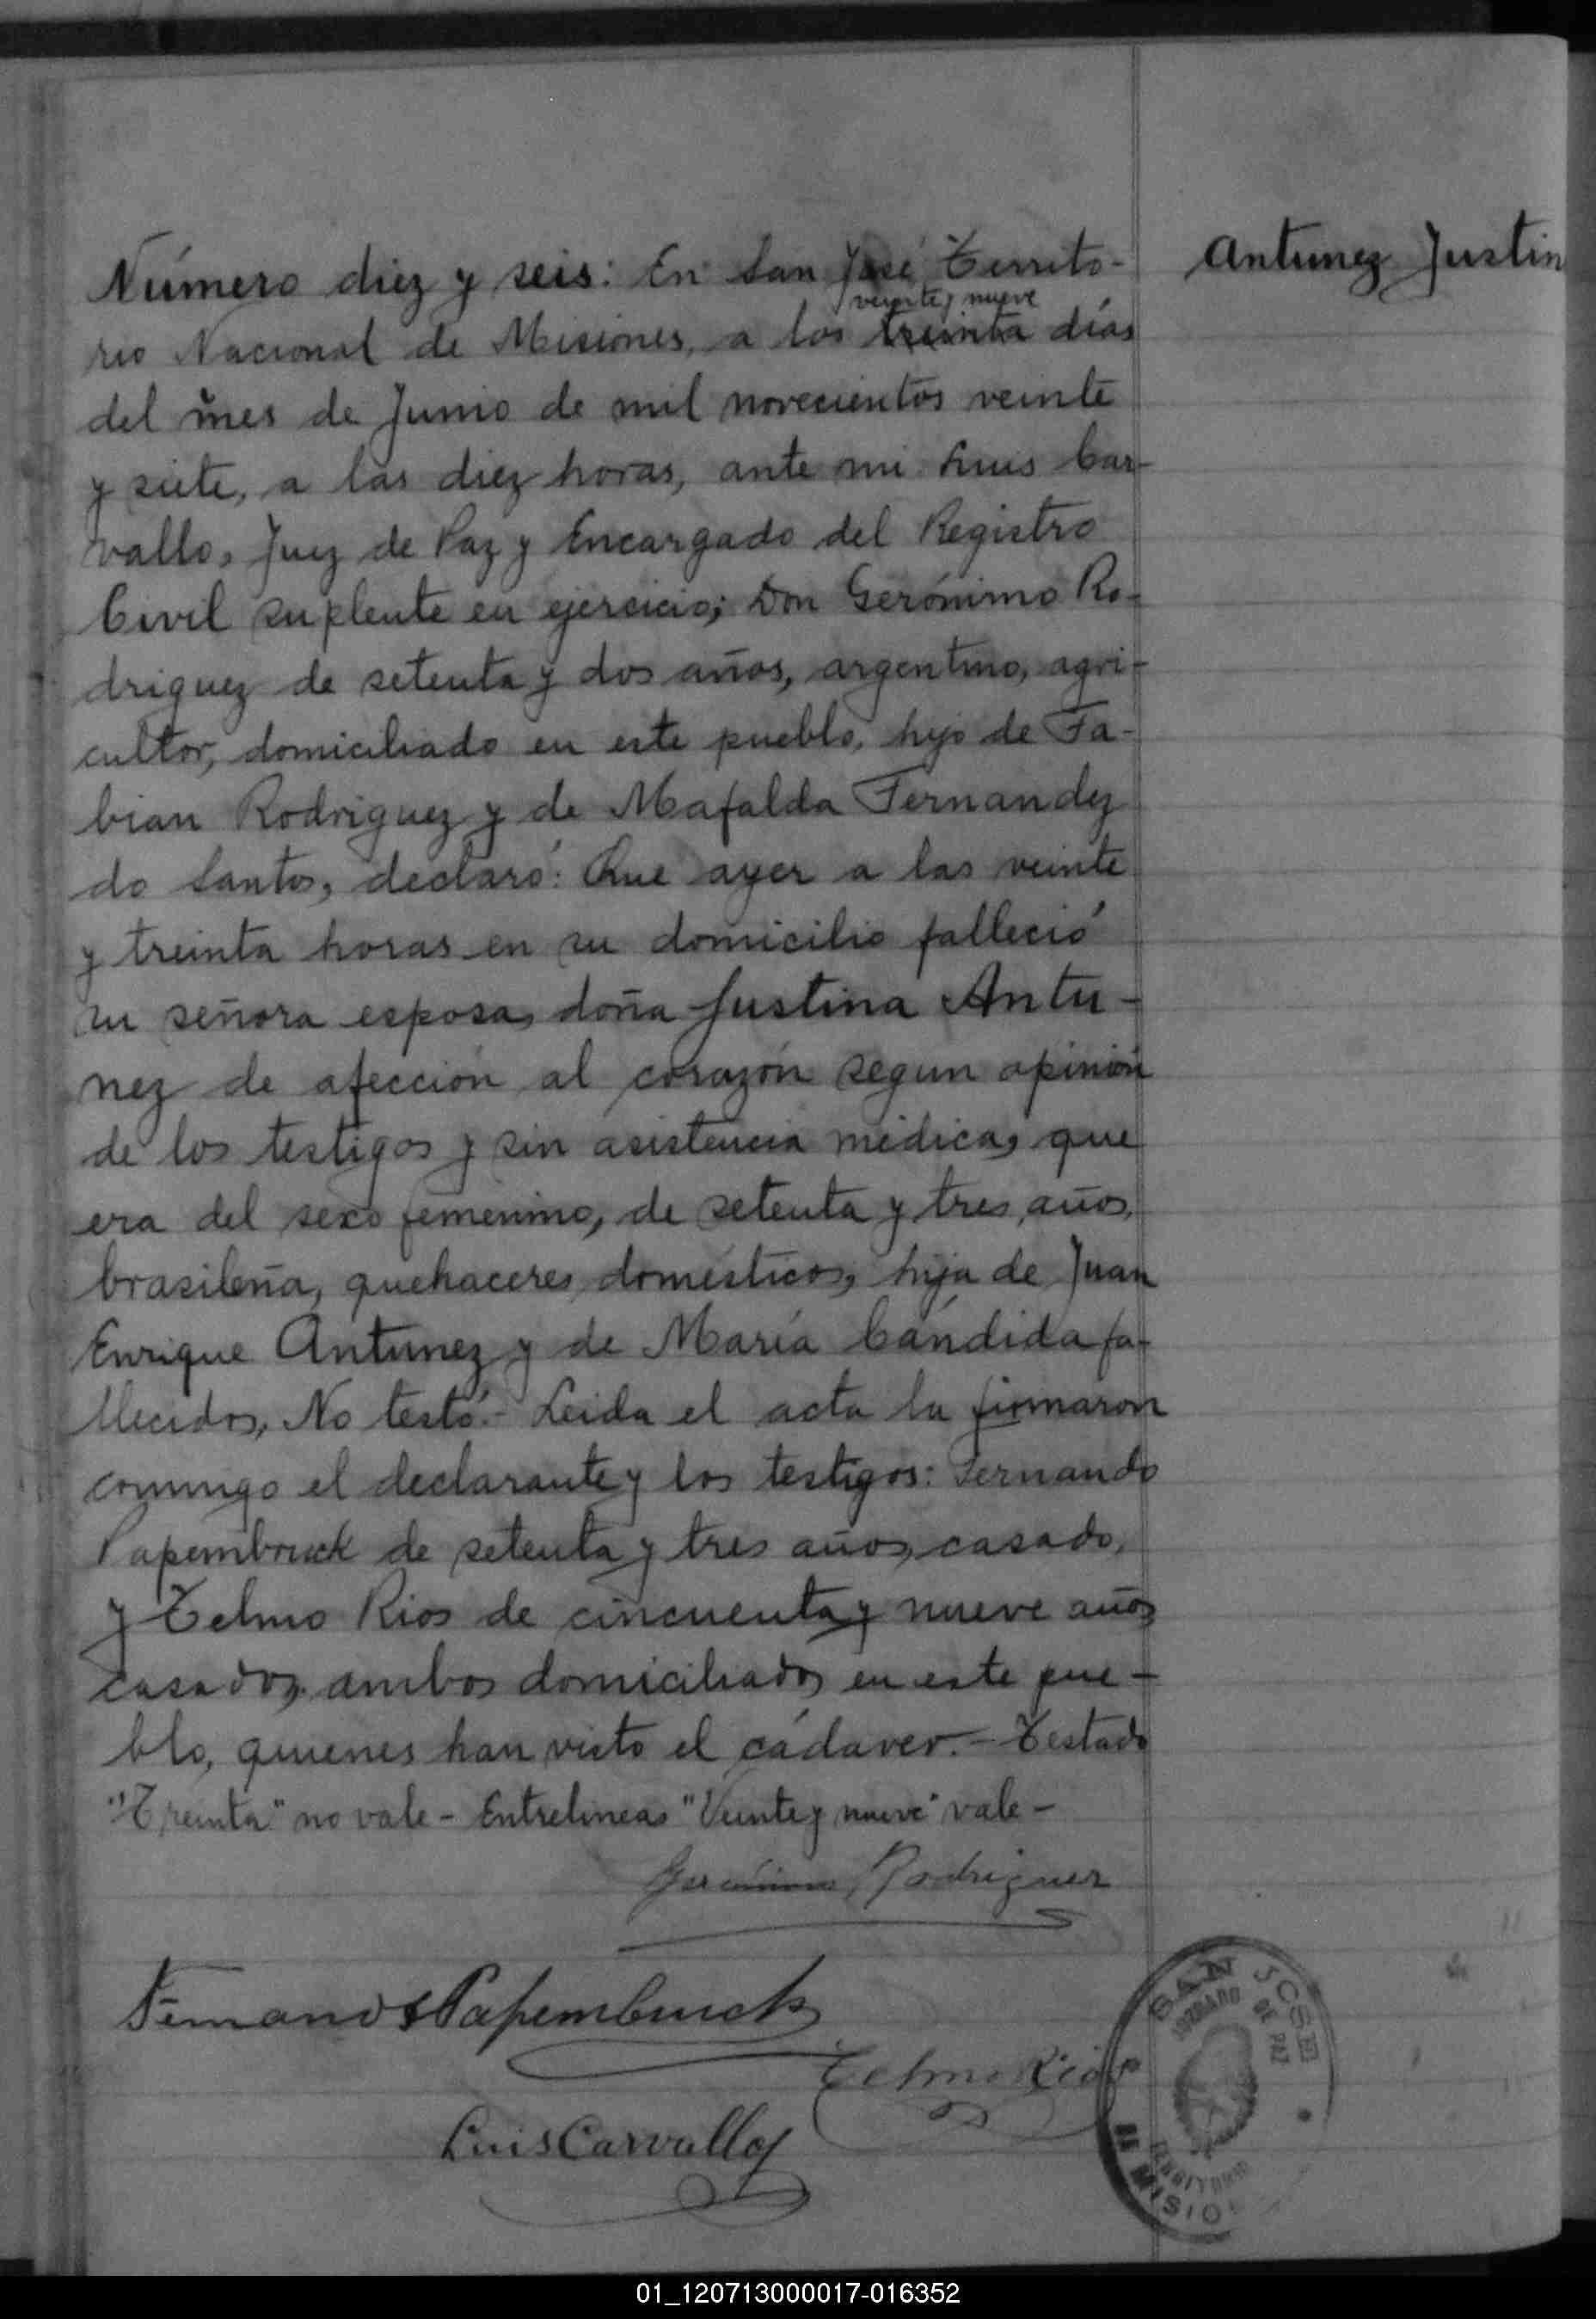 Antunez Justin
Número diez y seis: En San José Territo-
rio Nacional de Misiones, a los treinta días
veinte y nueve
del mes de Junio de mil novecientos veinte
y siete, a las diez horas, ante mi Luis Car-
vallo, Juez de Paz y Encargado del Registro
Civil suplente en ejercicio; Don Gerónimo Ro-
driguez de setenta y dos años, argentino, agri-
cultor, domiciliado en este pueblo, hijo de Fa-
bian Rodriguez y de Mafalda Fernandez
do Santos, declaró: Que ayer a las veinte
y treinta horas en su domicilio falleció
su señora esposa, doña Justina Antu-
nez de afección al corazón segun opinión
de los testigos y sin asistencia médica, que
era del sexo femenino, de setenta y tres años,
brasileña, quehaceres domésticos, hija de Juan
Enrique Antunez y de María Cándida fa-
llecidos, No testó.- Leida el acta la firmaron
conmigo el declarante y los testigos: Fernando
Papembruck de setenta y tres años, casado,
y Telmo Rios de cincuenta y nueve años
casado, ambos domiciliados en este pue-
blo, quienes han visto el cádaver.- Testado
"Treinta" no vale - Entrelineas "Veinte y nueve" vale -
Gerónimo Rodriguez
Fernando Papembruck
Telmo Rios
Luis Carvallo
SAN JOSE
JUZGADO DE PAZ
TERRITORIO
DE MISIO
01_120713000017-016352